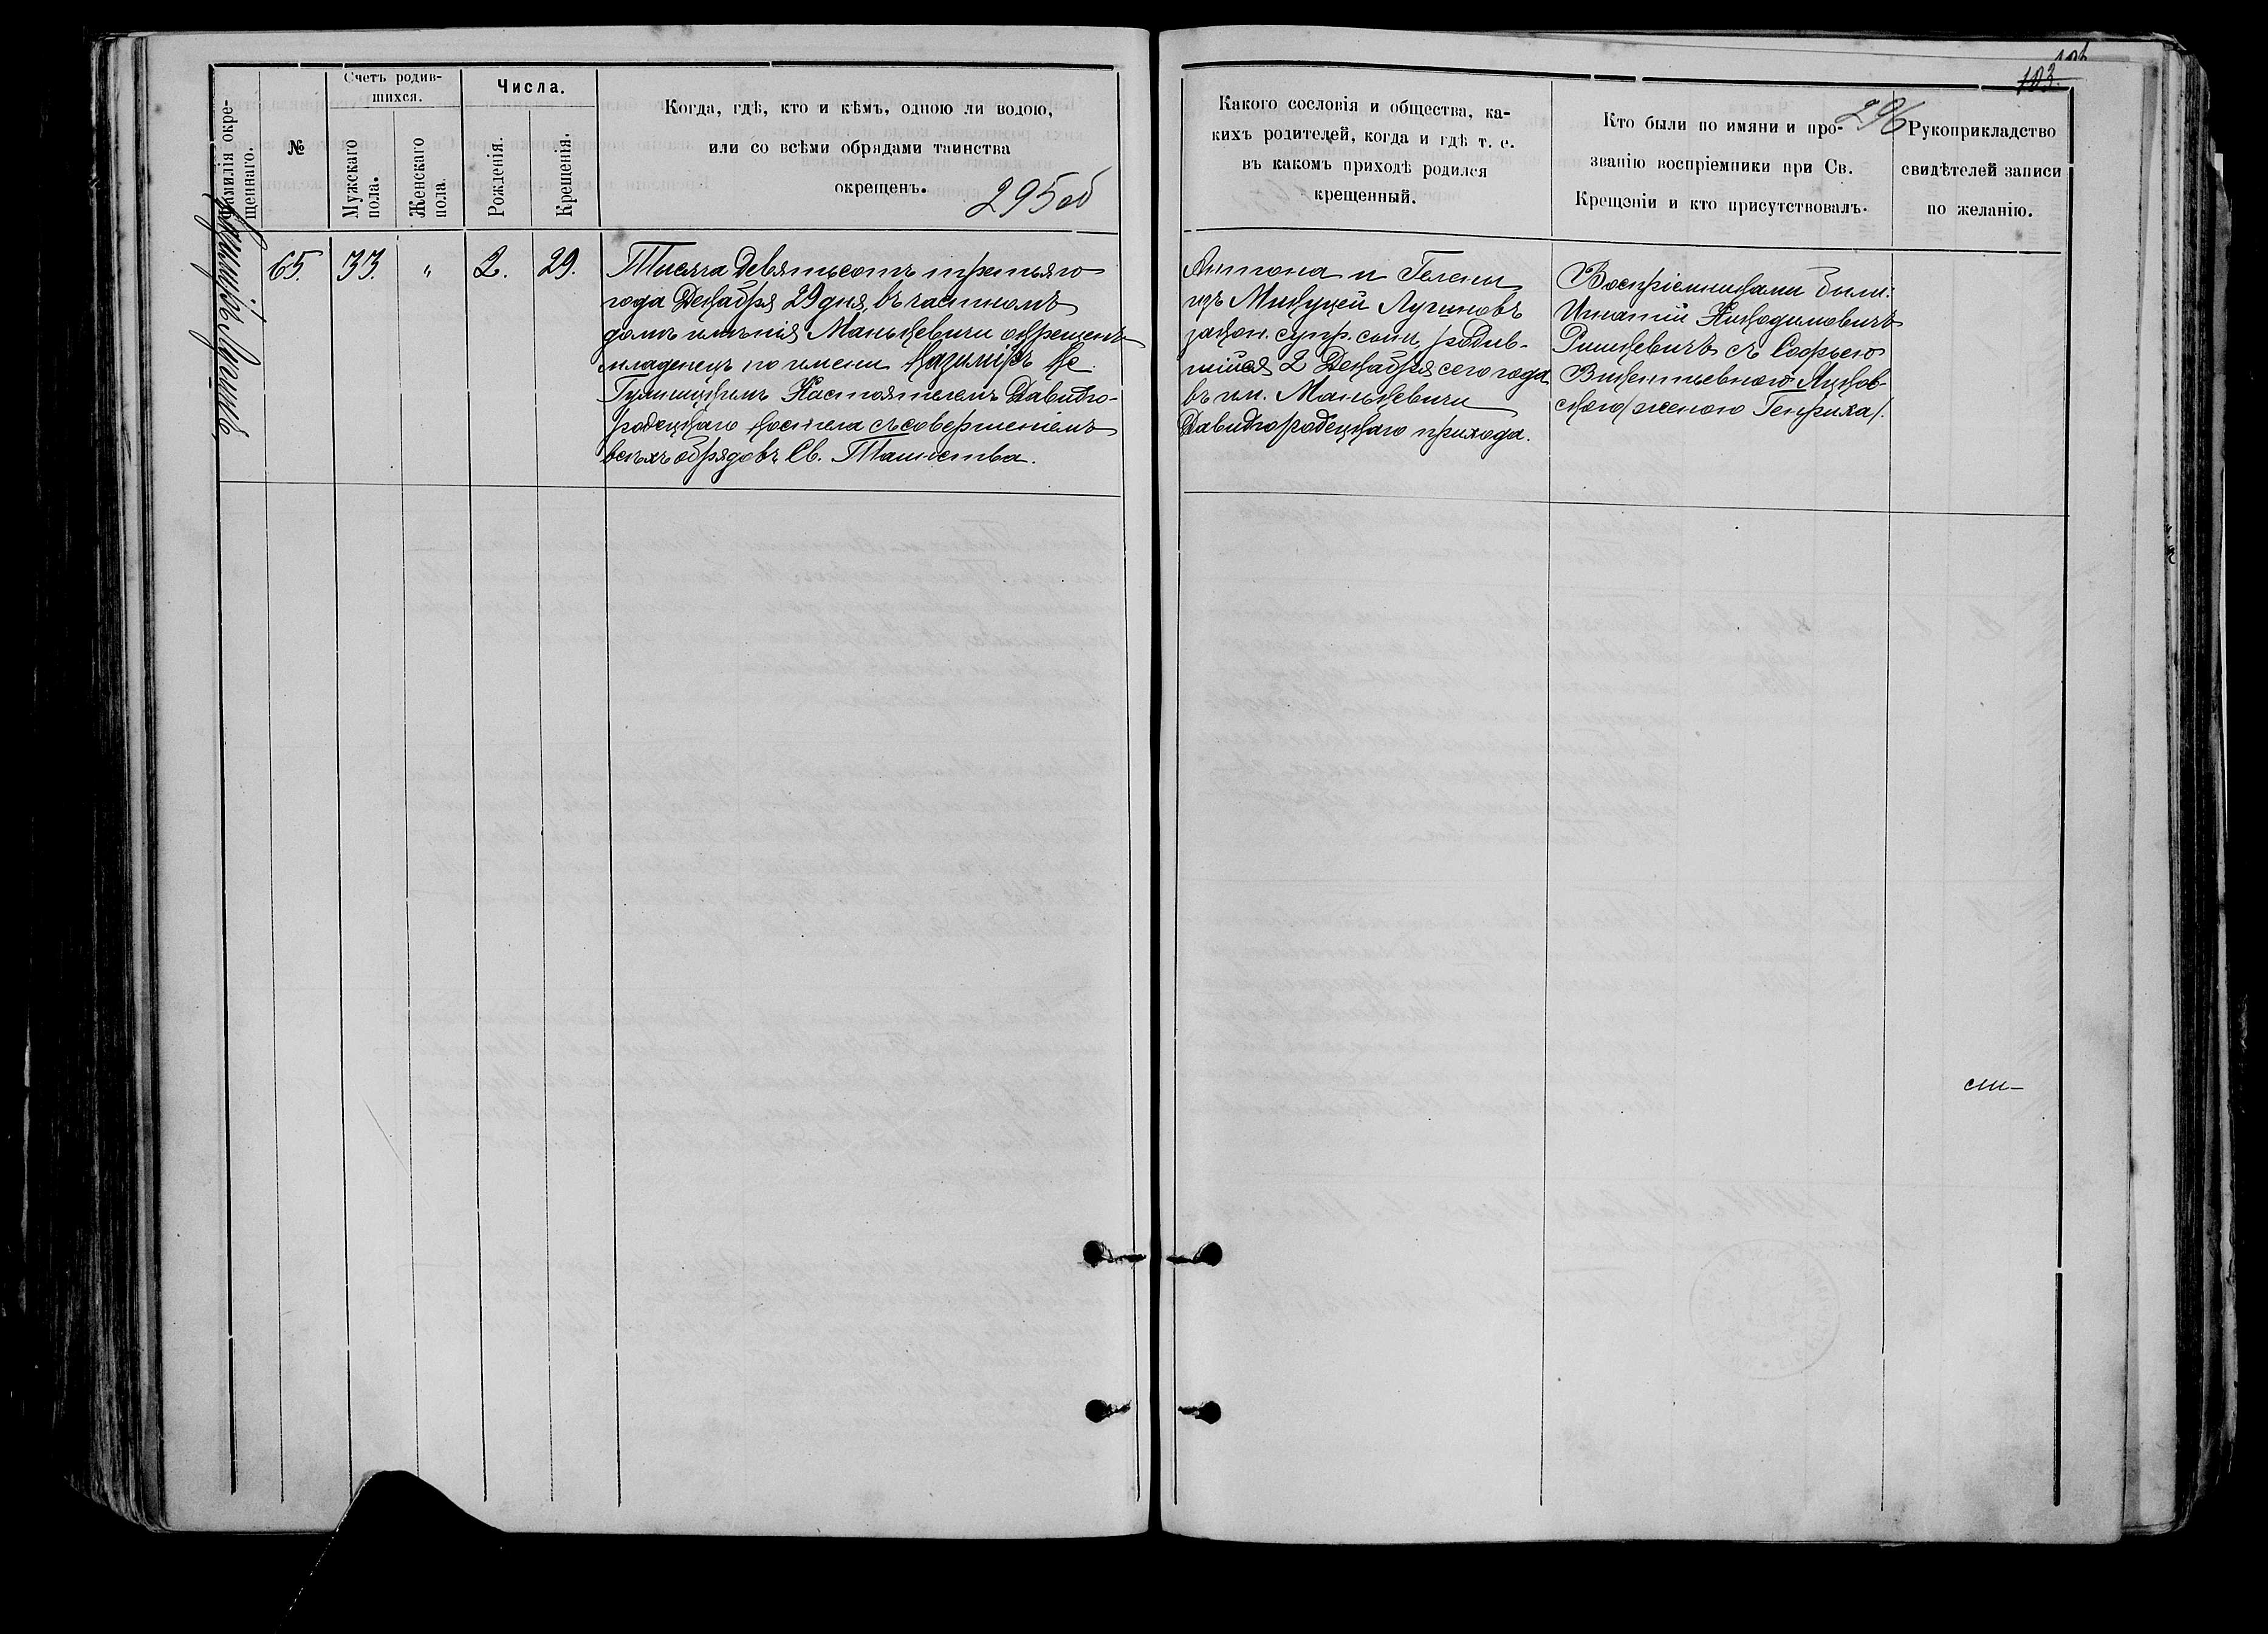 Фамилія окре-
щеннаго.
№
Счетъ родив-
шихся.
Мужскаго
пола.
Женскаго
пола.
Числа.
Рожденія.
Крещенія.
Когда, гдѣ, кто и кѣмъ, одною ли водою,
или со всѣми обрядами таинства
окрещенъ.
295 об
65.
33.
"
2.
29.
Тысяча девятьсотъ третьяго
года Декабря 29 дня, въ частномъ
домѣ имѣнія Маньковичи окрещенъ
младенецъ по имени Казиміръ Кс.
Настоятелемъ Давидго-
родецкаго костела съ совершеніемъ
всѣхъ обрядовъ Св. Таинства.
103.
296
Какого сословія и общества, ка-
кихъ родителей, когда и гдѣ т. е.
въ какомъ приходѣ родился
крещенный.
Кто были по имяни и про-
званію воспріемники при Св.
Крещеніи и кто присутствовалъ.
Рукоприкладство
свидѣтелей записи
по желанію.
Антона и Гелены
изъ
закон. супр. сынъ, родив-
шійся 2 Декабря сего года
въ им. Маньковичи
Давидгородецкаго прихода.
Воспріемниками были:
Игнатій Никодимовичъ
съ Софьею
Викентьевною
женою Генриха/.